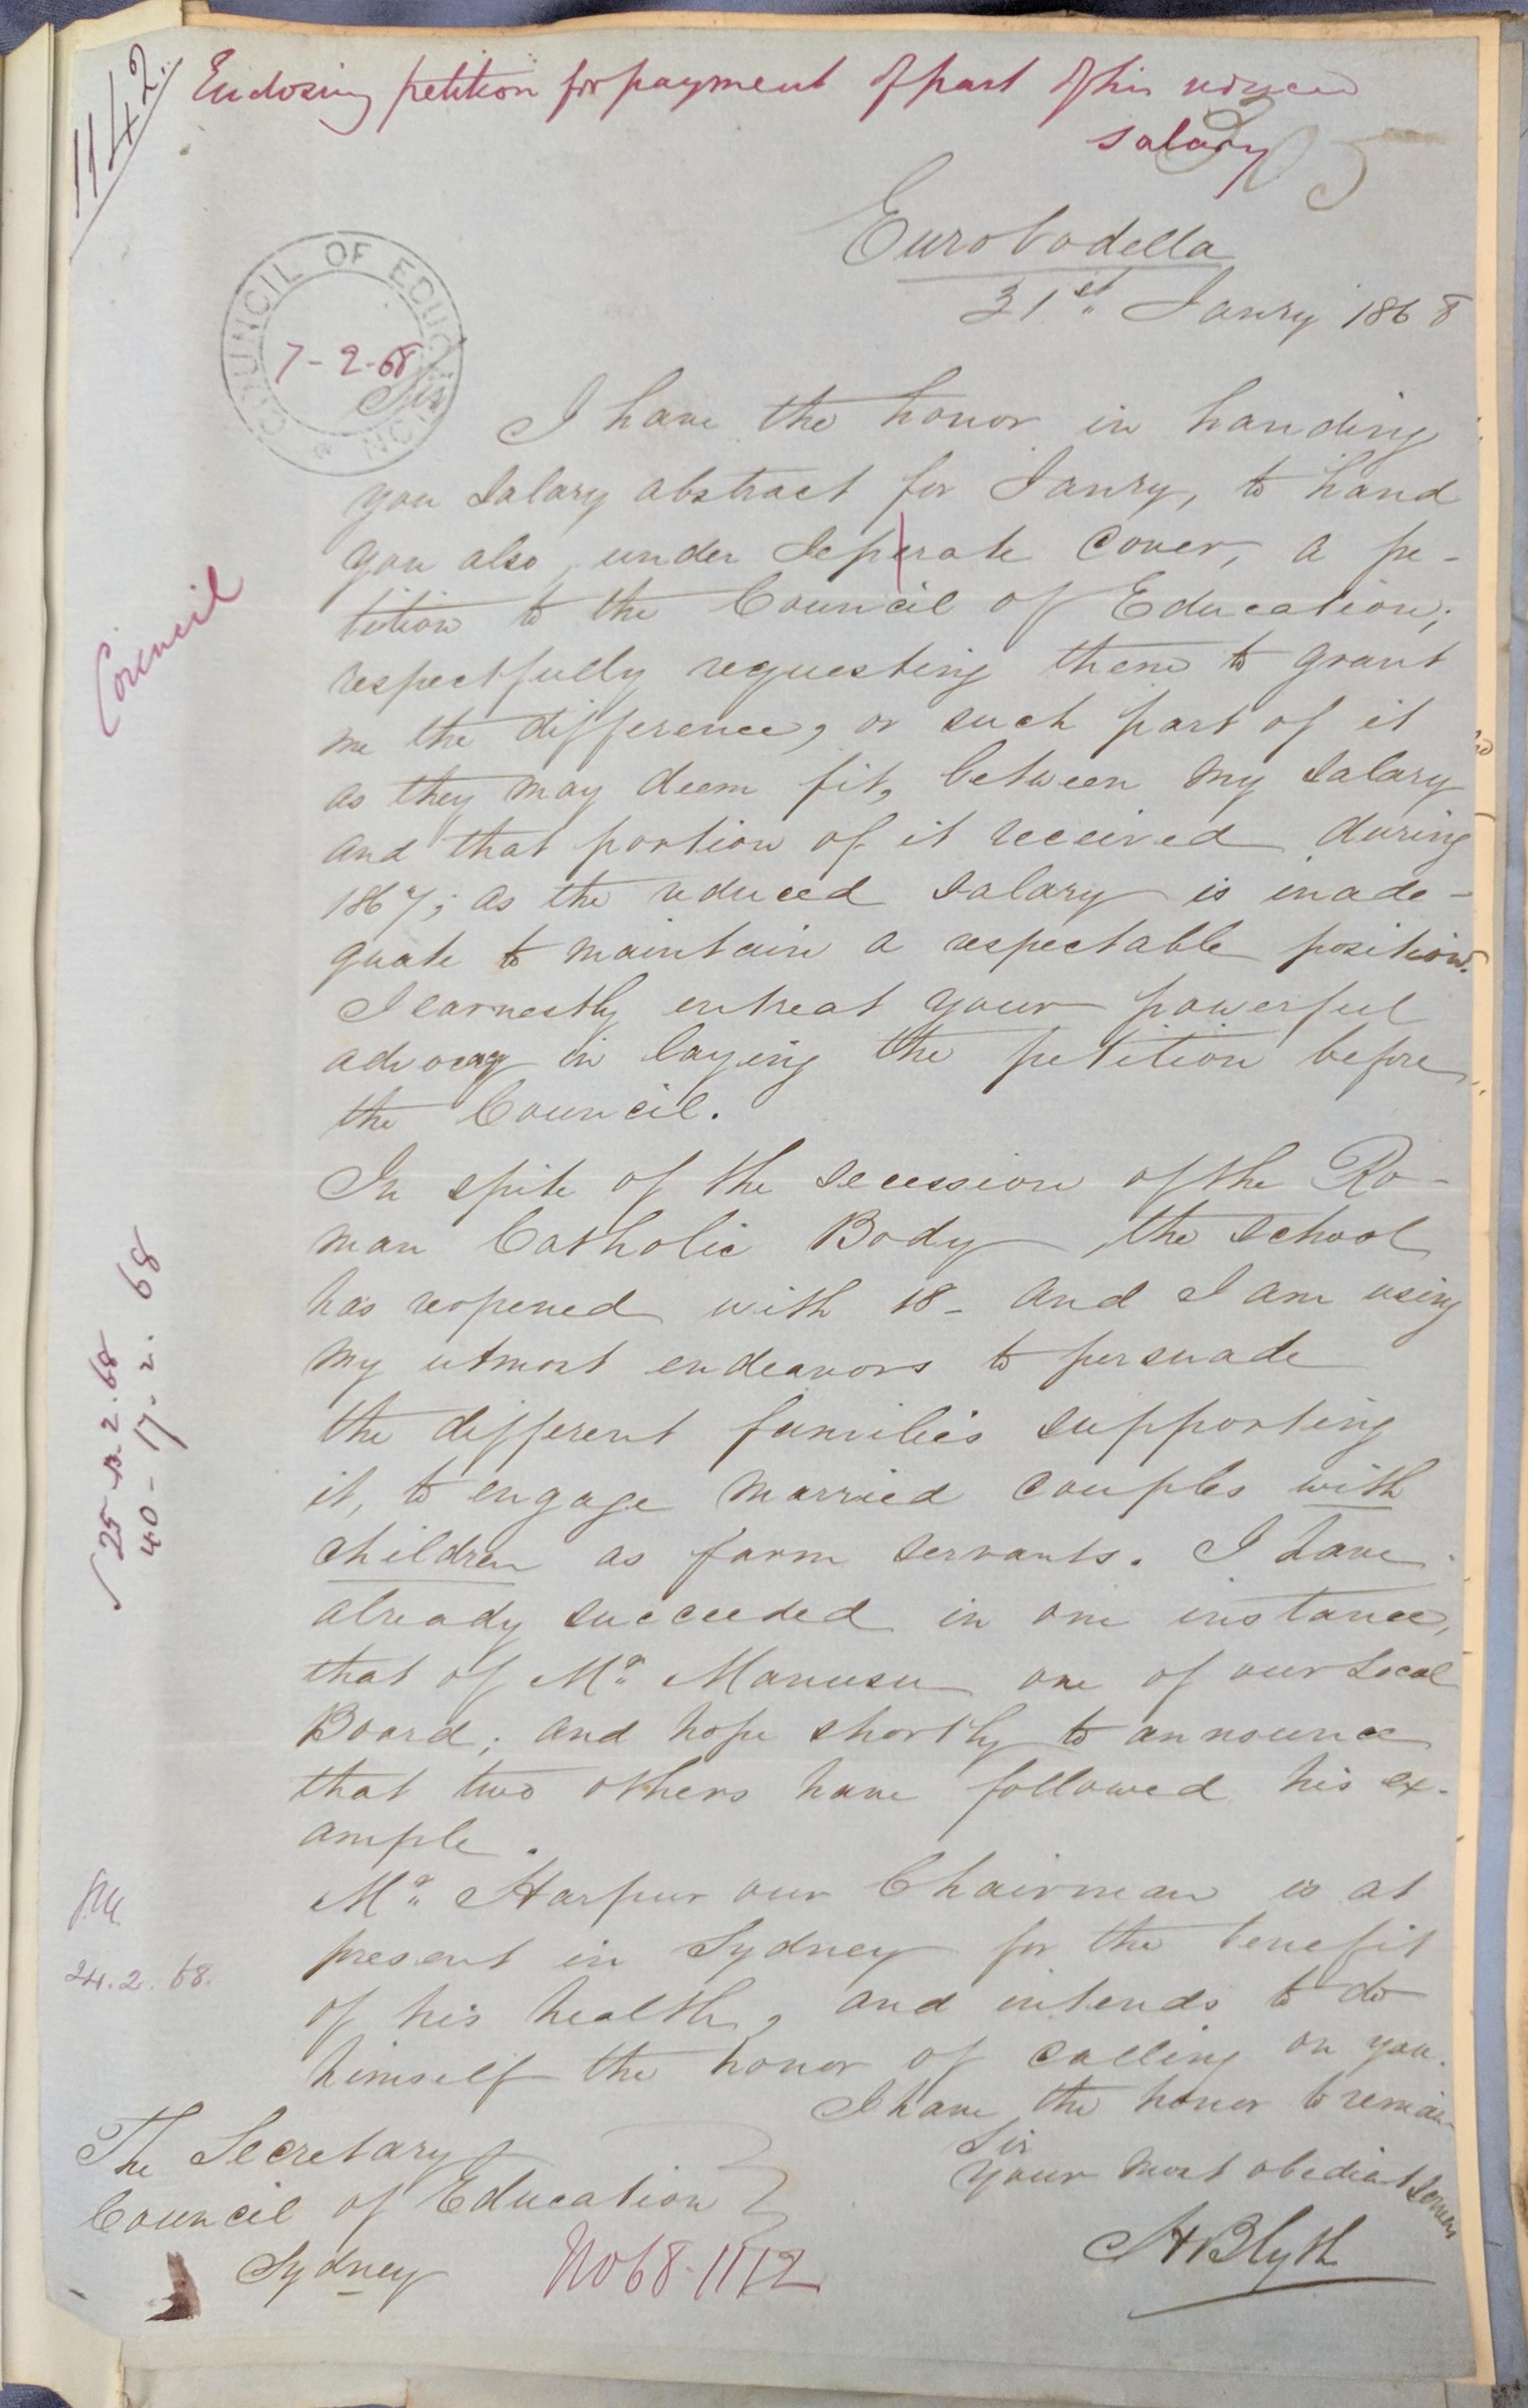 1142
Enclosing petition for payment of part of his reduced
salary
305
Eurobodella
31st Janry 1868
COUNCIL OF EDUCATION
7-2-68
Sir
I have the honor in handing
you Salary abstract for Janry, to hand
you also, under Seperate Cover, a pe-
tition to the Council of Education;
respectfully requesting them to grant
me the difference, or such part of it
as they may deem fit, between my Salary
and that portion of it received during
1867; as the reduced Salary is inade-
quate to maintain a respectable position.
I earnestly entreat your powerful
advocacy in laying the petition before
the Council.
In spite of the secession of the Ro-
man Catholic Body, the School
has reopened with 18 - and I am using
my utmost endeavors to persuade
the different families supporting
it, to engage married couples with
children as farm servants. I have
already succeeded in one instance,
that of Mr. Manusu one of our Local
Board; and hope shortly to announce
that two others have followed his ex-
ample.
Mr. Harpur our Chairman is at
present in Sydney for the benefit
of his health, and intends to do
himself the honor of calling on you.
I have the honor to remain
Sir
Your most obedient Servt
HBlyth
The Secretary
Council of Education
Sydney
No 68-1142
Council
40-17.2.68
24.2.68.